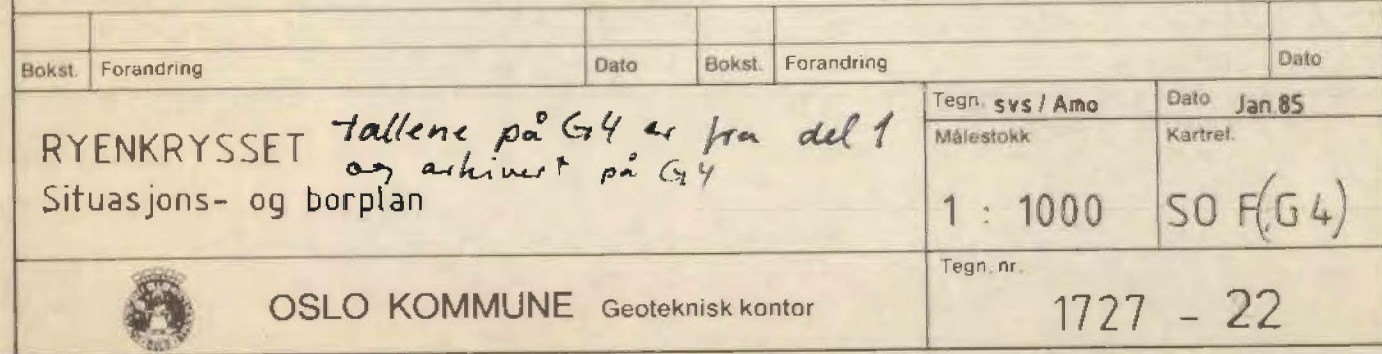 Bokst. Forandring Dato Bokst. Forandring Dato
RYENKRYSSET tallene på G4 er fra del 1
og arkivert på G4
Situasjons- og borplan
Tegn. svs / Amo
Dato Jan.85
Målestokk
1 : 1000
Kartref.
SO F(,G4)
OSLO KOMMUNE Geoteknisk kontor
Tegn. nr.
1727 - 22